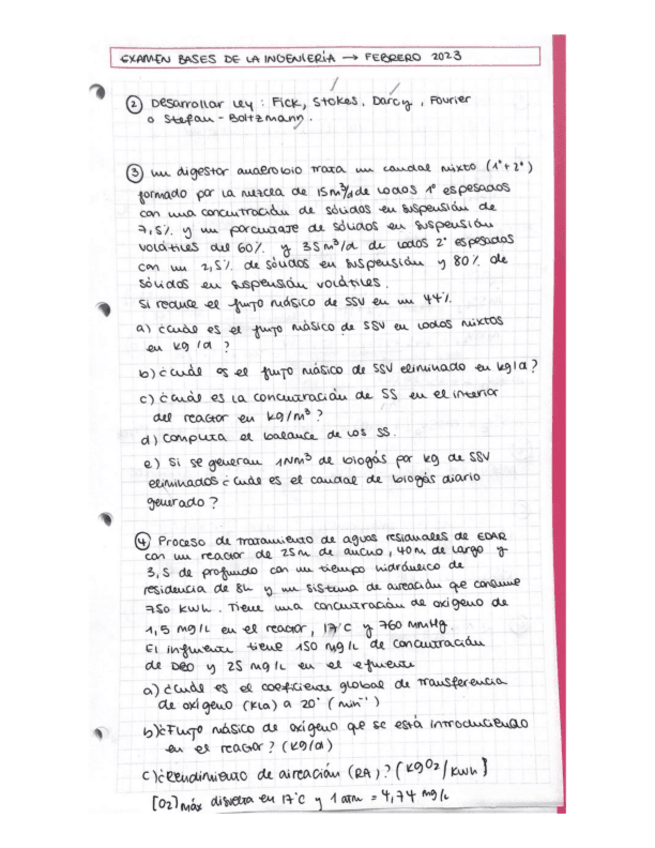 EXAMEN BASES DE LA INGENIERÍA → FEBRERO 2023
② Desarrollar ley : Fick, Stokes, Darcy, Fourier
o Stefan - Boltzmann.
③ un digestor anaerobio trata un caudal mixto (1º+2º)
formado por la mezcla de 15 m³/d de lodos 1º espesados
con una concentración de sólidos en suspensión de
7,5% y un porcentaje de sólidos en suspensión
volátiles del 60% y 35 m³/d de lodos 2º espesados
con un 2,5% de sólidos en suspensión y 80% de
sólidos en suspensión volátiles.
Si reduce el flujo másico de SSV en un 44%
a) ¿cuál es el flujo másico de SSV en lodos mixtos
en kg/d ?
b) ¿cuál es el flujo másico de SSV eliminado en kg/d?
c) ¿cuál es la concentración de SS en el interior
del reactor en kg/m³ ?
d) completa el balance de los SS.
e) Si se generan 1Nm³ de biogás por kg de SSV
eliminados ¿cuál es el caudal de biogás diario
generado ?
④ Proceso de tratamiento de aguas residuales de EDAR
con un reactor de 25m de ancho, 40m de largo y
3,5 de profundo con un tiempo hidráulico de
residencia de 8h y un sistema de aireación que consume
750 kWh. Tiene una concentración de oxígeno de
1,5 mg/L en el reactor, 17°C y 760 mmHg.
El influente tiene 150 mg/L de concentración
de DBO y 25 mg/L en el efluente
a) ¿cuál es el coeficiente global de transferencia
de oxígeno (KLa) a 20° (min⁻¹)
b) ¿Flujo másico de oxígeno que se está introduciendo
en el reactor? (kg/d)
c) ¿Rendimiento de aireación (RA)? (kgO2/kWh)
[O2] máx disuelta en 17°C y 1 atm = 4,74 mg/L